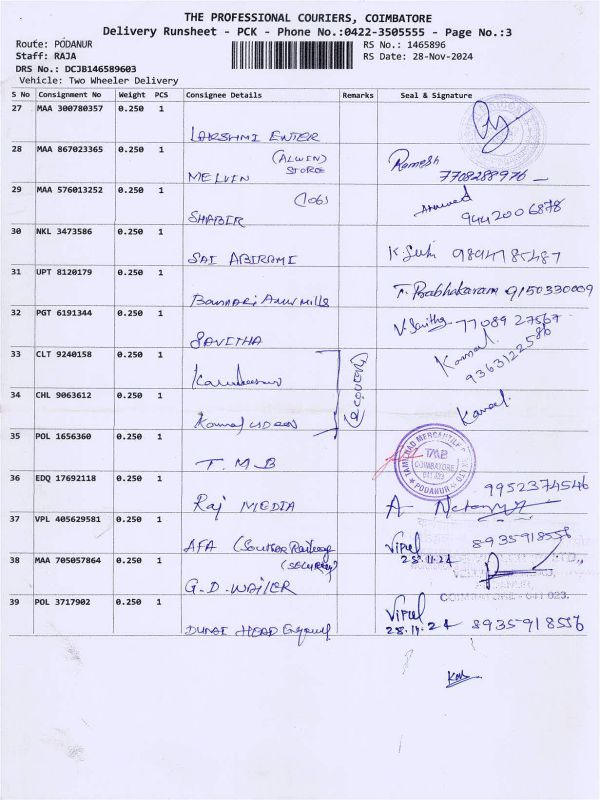 THE PROFESSIONAL COURIERS, COIMBATORE
Delivery Runsheet - PCK - Phone No.:0422-3505555 - Page No.:3
Route: PODANUR
RS No.: 1465896
Staff: RAJA
RS Date: 28-Nov-2024
DRS No.: DCJB146589603
Vehicle: Two Wheeler Delivery
S No Consignment No Weight PCS Consignee Details Remarks Seal & Signature
27 MAA 300780357 0.250 1
LAKSHMI ENTER
28 MAA 867023365 0.250 1
(ALWIN)
STORE
MELVIN
Ramesh
7708288976
29 MAA 576013252 0.250 1
(106)
SHABIR
9442006878
30 NKL 3473586 0.250 1
SAI ABIRAMI
31 UPT 8120179 0.250 1
T. Prabhakaran 9150330009
32 PGT 6191344 0.250 1
SAVITHA
V. Savitha 77089 27567
33 CLT 9240158 0.250 1
Kamal
9363122586
34 CHL 9063612 0.250 1
Kamal
35 POL 1656360 0.250 1
T. M. B
TAMILNAD MERCANTILE
TMB
COIMBATORE
641 023
PODANUR
36 EDQ 17692118 0.250 1
Raj MEDIA
9952374546
37 VPL 405629581 0.250 1
AFA (Souther Railway
(SECURITY)
Vipul
28.11.24
8935918556
38 MAA 705057864 0.250 1
G. D. WAILER
COIMBATORE - 641 023.
39 POL 3717902 0.250 1
Vipul
28.11.24 8935918556